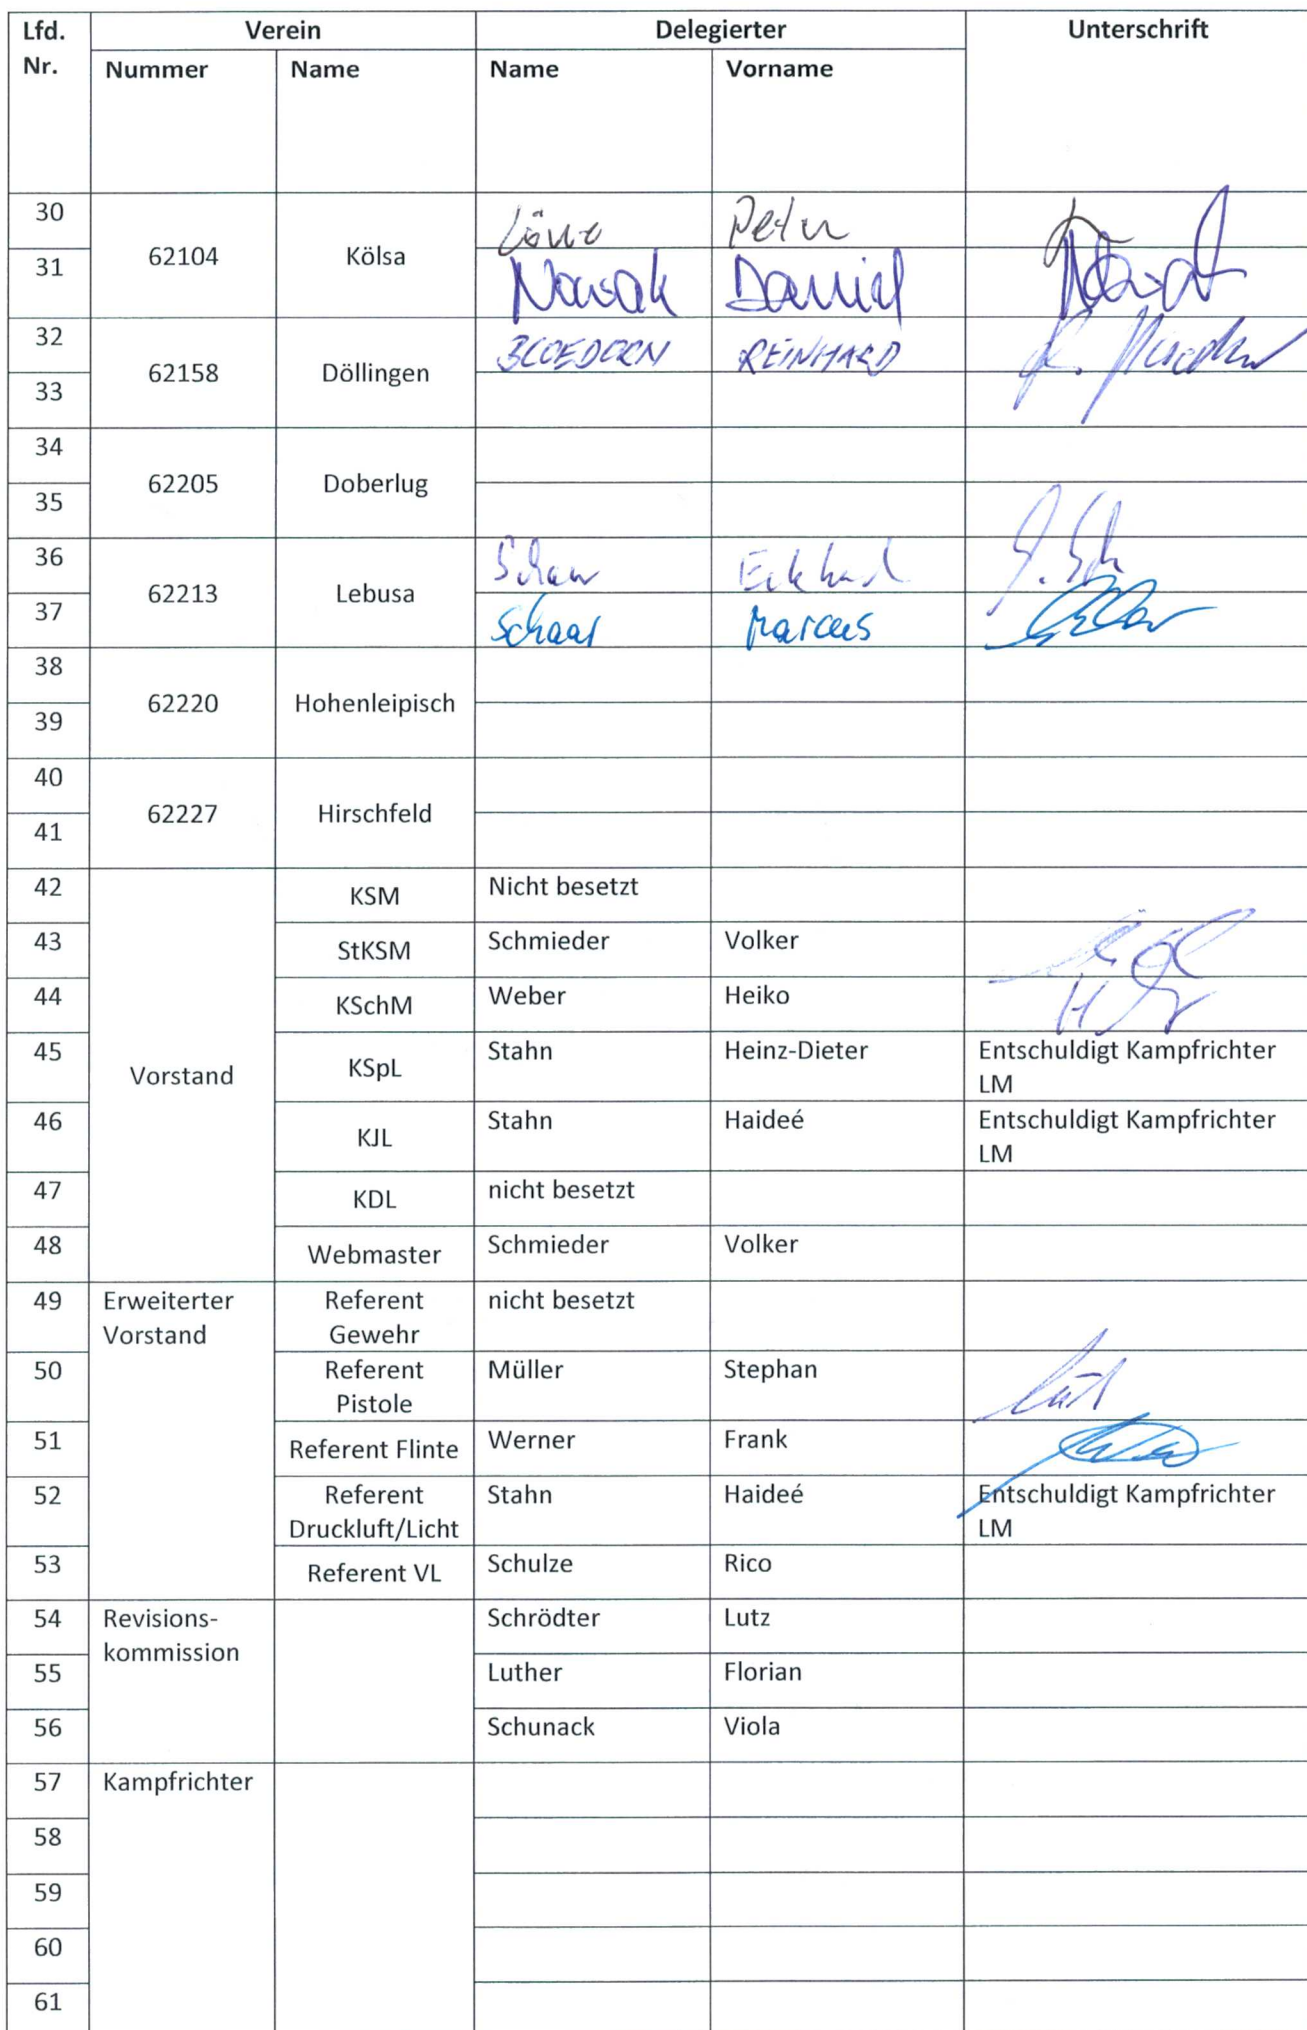 Lfd. Nr. Verein Delegierter Unterschrift
Nummer Name Name Vorname
30 62104 Kölsa Löwe Peter
31 Nowak Daniel Nowak
32 62158 Döllingen BLOEDORN REINHARD
33
34 62205 Doberlug
35
36 62213 Lebusa Schaar Eckhard
37 Schaar Marcus
38 62220 Hohenleipisch
39
40 62227 Hirschfeld
41
42 Vorstand KSM Nicht besetzt
43 StKSM Schmieder Volker
44 KSchM Weber Heiko
45 KSpL Stahn Heinz-Dieter Entschuldigt Kampfrichter
LM
46 KJL Stahn Haideé Entschuldigt Kampfrichter
LM
47 KDL nicht besetzt
48 Webmaster Schmieder Volker
49 Erweiterter Referent nicht besetzt
Vorstand Gewehr
50 Referent Müller Stephan
Pistole
51 Referent Flinte Werner Frank
52 Referent Stahn Haideé Entschuldigt Kampfrichter
Druckluft/Licht LM
53 Referent VL Schulze Rico
54 Revisions- Schrödter Lutz
kommission
55 Luther Florian
56 Schunack Viola
57 Kampfrichter
58
59
60
61